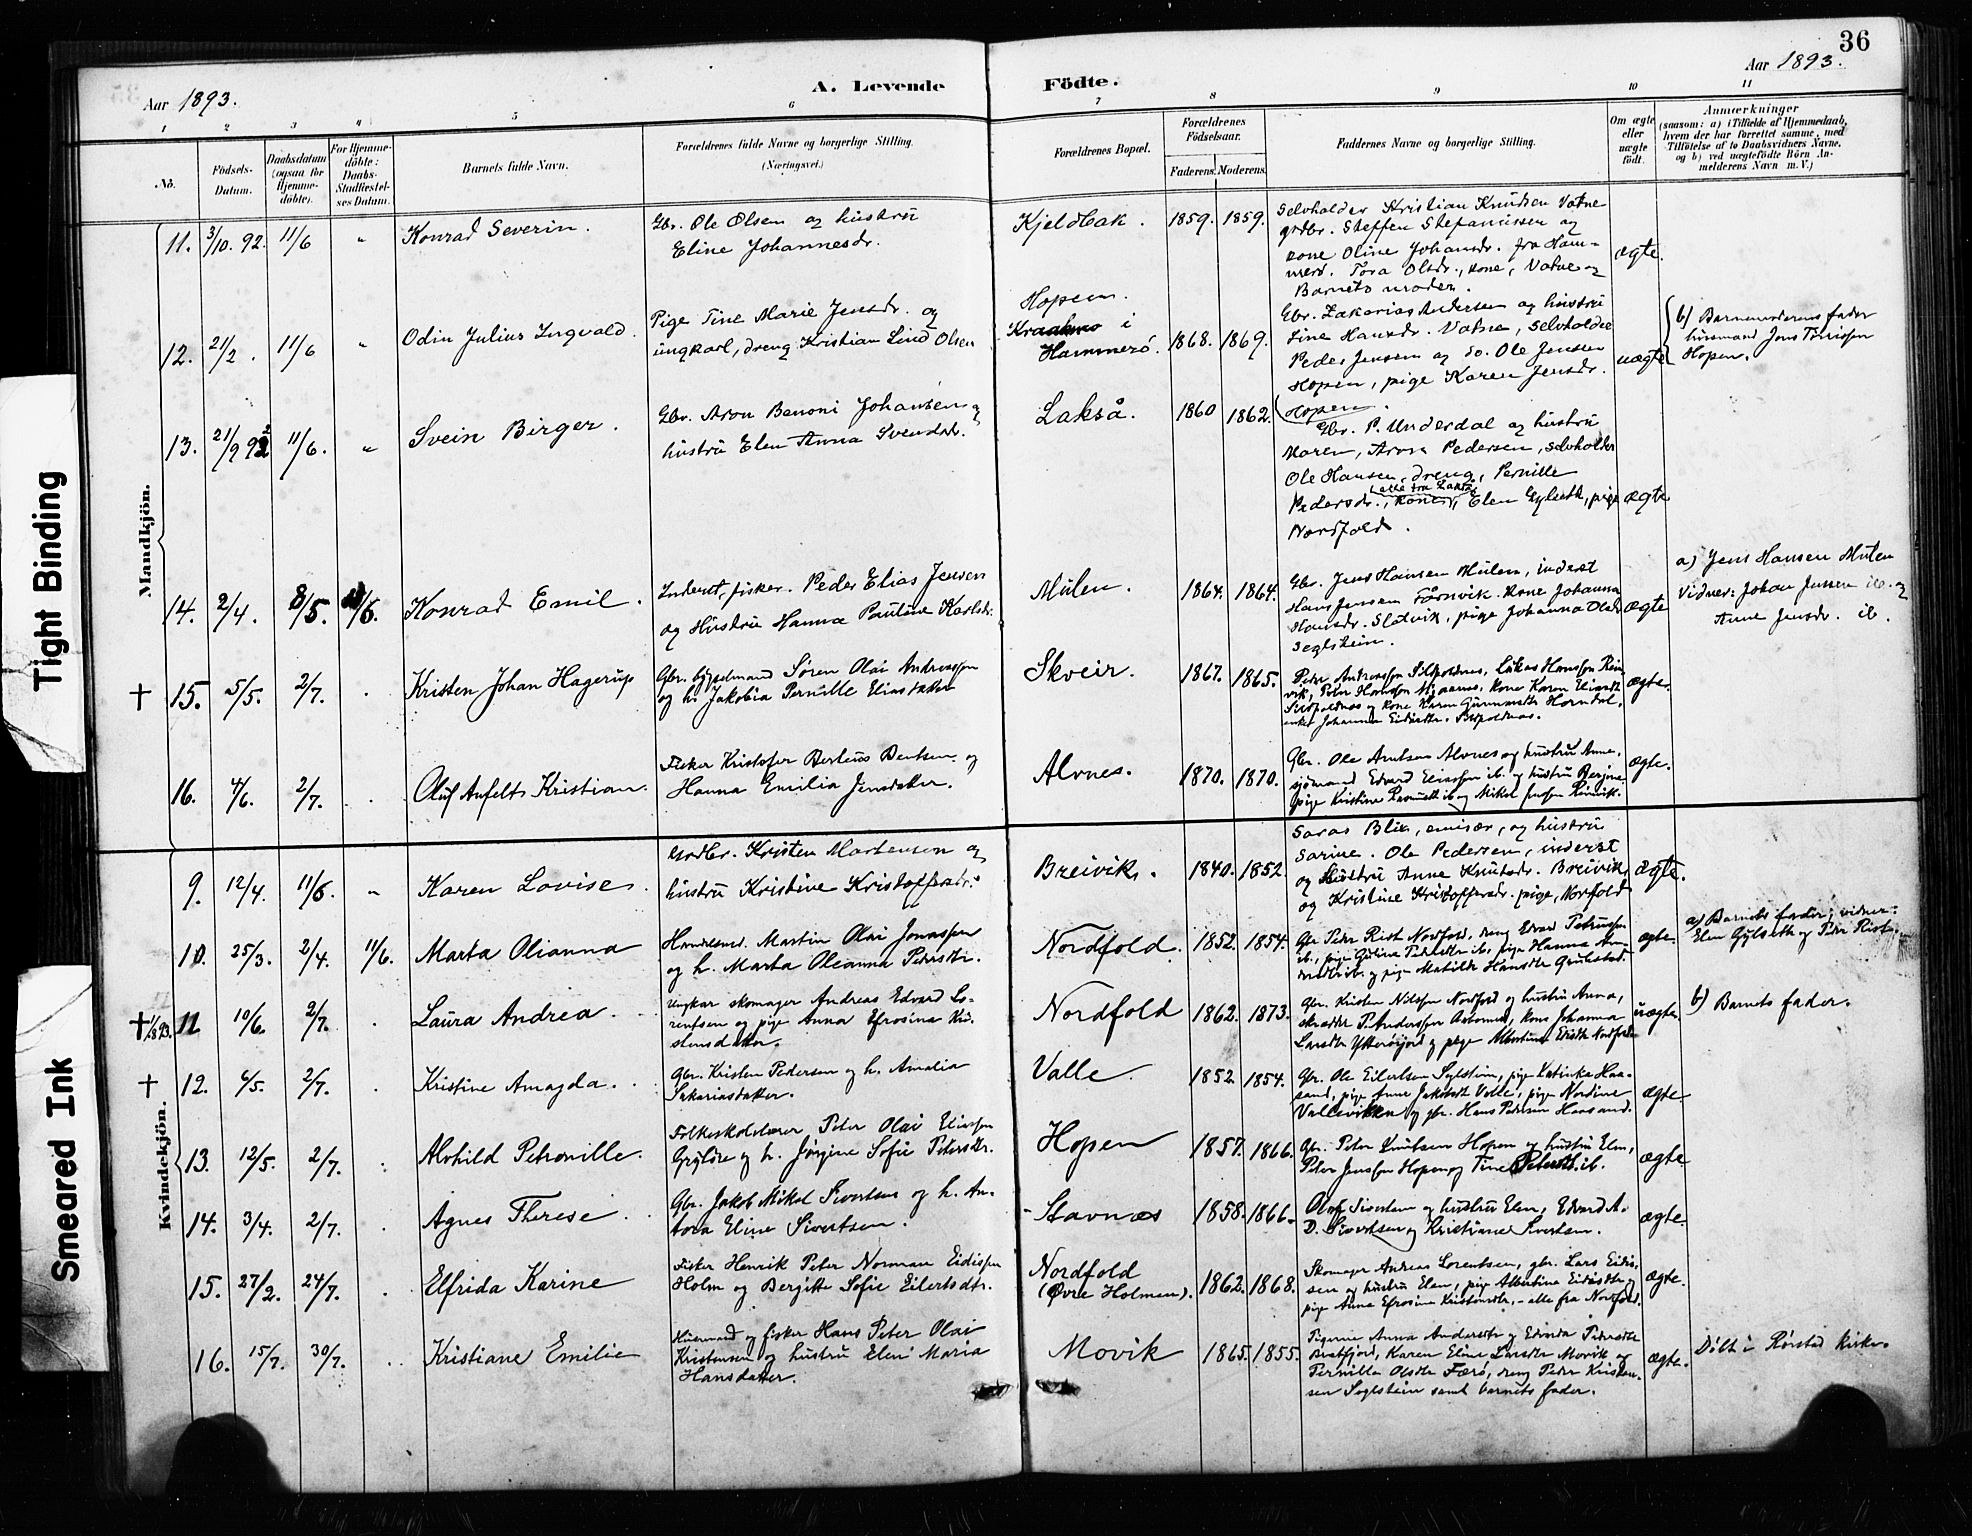 36
Aar 1893.
A. Levende Födte.
Aar 1893.
1 2 3 4 5 6 7 8 9 10 11
No.
Födsels-
Datum.
Daabsdatum
(ogsaa for
Hjemme-
döbte).
For Hjemme-
döbte:
Daabs-
Stadfæstel-
ses Datum.
Barnets fulde Navn.
Forældrenes fulde Navne og borgerlige Stilling.
(Næringsvei.)
Forældrenes Bopæl.
Forældrenes
Födselsaar.
Faderens. Moderens.
Faddernes Navne og borgerlige Stilling.
Om ægte
eller
uægte
födt.
Anmærkninger
(saasom: a) i Tilfælde af Hjemmedaab,
hvem der har forrettet samme, med
Tilföielse af to Daabsvidners Navne,
og b) ved uægtefödte Börn An-
melderens Navn m. V.)
Mandkjön.
11. 3/10. 92. 11/6 „ Konrad Severin.
Gbr. Ole Olsen og hustru
Eline Johannesdr.
Kjeldbak. 1859. 1859.
Selvholder Kristian Knudsen Vatne
grdbr. Steffen Stefanussen og
kone Oline Johansdr. fra Ham-
merø. Tora Olsdr., kone, Vatne og
Barnets moder.
ægte.
12. 21/2. 11/6 „ Odin Julius Ingvald.
Pige Tine Marie Jensdr. og
ungkarl, dreng Kristian Lind Olsen
Hopen.
Kraakmo i
Hammerø. 1868. 1869.
Gbr. Zakarias Andersen og hustru
Line Hansdr. Vatne, selvholder
Peder Jensen og do. Ole Jensen
Hopen, pige Karen Jensdr.
Hopen.
uægte
b) Barnemoderens fader
husmand Jens Tinissen
Hopen.
13. 21/9 92 11/6. „ Svein Birger.
Gbr. Aron Benoni Johansen og
hustru Elen Anna Svendsdr.
Lakså. 1860 1862.
Gbr. P. Underdal og hustru
Maren, Arona Pedersen, selvholder
Ole Hansen, dreng, Pernille
Pedersdr., kone, (alle fra Lakså) Elen Gylseth, pige
Nordfold.
ægte
14. 2/4. 8/5. 11/6. Konrad Emil.
Inderst, fisker Peder Elias Jensen
og Hustru Hanna Pauline Karlsdr.
Mulen. 1864. 1864.
Gbr. Jens Hansen Mulen, inderst
Hans Jensen Fårnvik. kone Johanna
Hansdr. Slotvik, pige Johanna Olsdr
Seglstein.
ægte
a) Jens Hansen Mulen
Vidner: Johan Jensen ib. og
Anne Jensdr. ib.
† 15. 5/5. 2/7. Kristen Johan Hagerup
Gbr. bygselmand Søren Olai Andreassen
og h. Jakobia Pernille Eliasdatter
Skveir. 1867. 1865.
Peder Andreassen Sildpoldnes, Lukas Hansson Rein-
vik, Peter Hansson Mjaanes, kone Karen Eliasdtr
Sildpoldnes og kone Karen Gunnarsdtr Horndal,
enke Johanna Eidisdtr. Sildpoldnes.
ægte.
16. 4/6. 2/7. Oluf Anfelts Kristian.
Fisker Kristofer Berteus Bentsen og
Hanna Emilia Jensdatter.
Alvnes. 1870. 1870.
Gbr. Ole Arntsen Alvnes og hustru Anna.
sjömand Edvard Eliassen ib. og hustru Bergine
pige Kristine ib. og Mikal Jensen Reinvik.
ægte.
Kvindekjön.
9. 12/4. 11/6. „ Karen Lovise.
Grdbr. Kristen Mortensen og
hustru Kristine Kristoffersdr.
Breivik. 1840. 1852.
Saras Blix, emisær, og hustru
Sarine. Ole Pedersen, inderst
og hustru Anne Knutsdr. Breivik
og Kristine Kristoffersdr. pige, Norfold
ægte.
10. 25/3. 2/4. 11/6. Marta Olianna
Handelsmd. Martin Olai Jonassen
og h. Marta Oleanna Pedersdtr.
Nordfold. 1852. 1854.
Gbr Peder Rist Nordfold, dreng Edvard Petersen
ib., pige Gusine Pedersdtr ib., pige Hanna
ib. og pige Matilde Hansdtr
ægte.
a) Barnets fader; vidner:
Elen Gylseth og Peder Rist.
† 1893. 11. 10/6. 2/7. Laura Andrea.
Ungkar skomager Andreas Edvard Lo-
rentsen og pige Anna Efrosine Kri-
stensdatter.
Nordfold 1862. 1873.
Gbr. Kristen Nilssen Nordfold og hustru Anna,
skrædder P. Anderssen, kone Johanna
Larsdtr og pige Albertine Eidisdtr Nordfold
uægte
b) Barnets fader.
† 12. 6/5. 2/7. Kristine Amagda.
Gbr. Kristen Pedersen og h. Amalia
Sakariasdatter.
Valle. 1852 1854.
Gbr. Ole Eilertsen Seglstein, pige Katinka Haa-
sand, pige Anne Jakobsdtr Valle, pige Nordine
Vallevikken og gbr. Hans Pedersen Haasand.
ægte
13. 12/5. 2/7. Alvhild Petronille.
Folkeskolelærer Peter Olai Eliassen
og h. Jørgine Sofie Petersdtr.
Hopen 1857. 1866.
Gbr. Peter Knutsen Hopen og hustru Elen,
Peter Jenssen Hopen og Tine Petersdtr. ib.
ægte
14. 3/4. 2/7. Agnes Therese
Gbr. Jakob Mikal Sivertsen og h. An-
tora Eline Sivertsen.
Stavnes 1858. 1866.
Olof Sivertsen og hustru Elen, Edvard A.
D. Sivertsen og Kristiane Sivertsen.
ægte.
15. 27/2. 24/7. Elfrida Karine
Fisker Henrik Peter Norman Eidissen
Holm og Bergitte Sofie Eilertsdtr.
Nordfold
(Øvre Holmen). 1862. 1868.
Skomager Andreas Lorentsen, gbr. Lars Eidis-
sen og hustru Elen, pige Albertine Eidisdtr og
pige Anna Efrosine Kristensdtr, - alle fra Nordfold.
ægte.
16. 15/7. 30/7. Kristiane Emilie
Husmand og fisker Hans Peter Olai
Kristensen og hustru Elen Maria
Hansdatter.
Movik 1865. 1855.
Pigerne Anna Andersdtr og Edvarda Pedersdtr
Brotfjord, Karen Eline Larsdtr Movik og
Pernilla Olsdtr Færø, dreng Peder Kristen-
sen Seglstein samt barnets fader.
ægte.
Döbt i Rörstad kirke.
Tight Binding
Smeared Ink